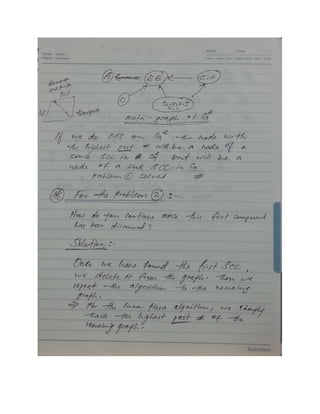 main-graph of G^R
If we do DFS on G^R the node with
the highest post # will be a node of a
source SCC in G^R but will be a
node of a sink SCC in G.
problem ① solved #
For the Problem ② :-
How do you continue once this first component
has been discovered?
Solution :-
Once we have found the first SCC,
we delete it from the graph. Then we
repeat the algorithm to the remaining
graph.
⇒ For the linear time algorithm, we simply
track the highest post # of the
remaining graph.